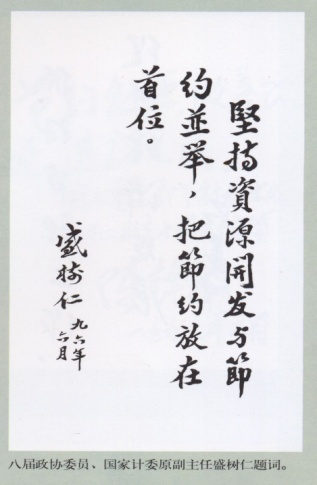 堅持資源開发与節
約並举，把節約放在
首位。
盛樹仁
九六年
六月
八届政协委员、国家计委原副主任盛树仁题词。